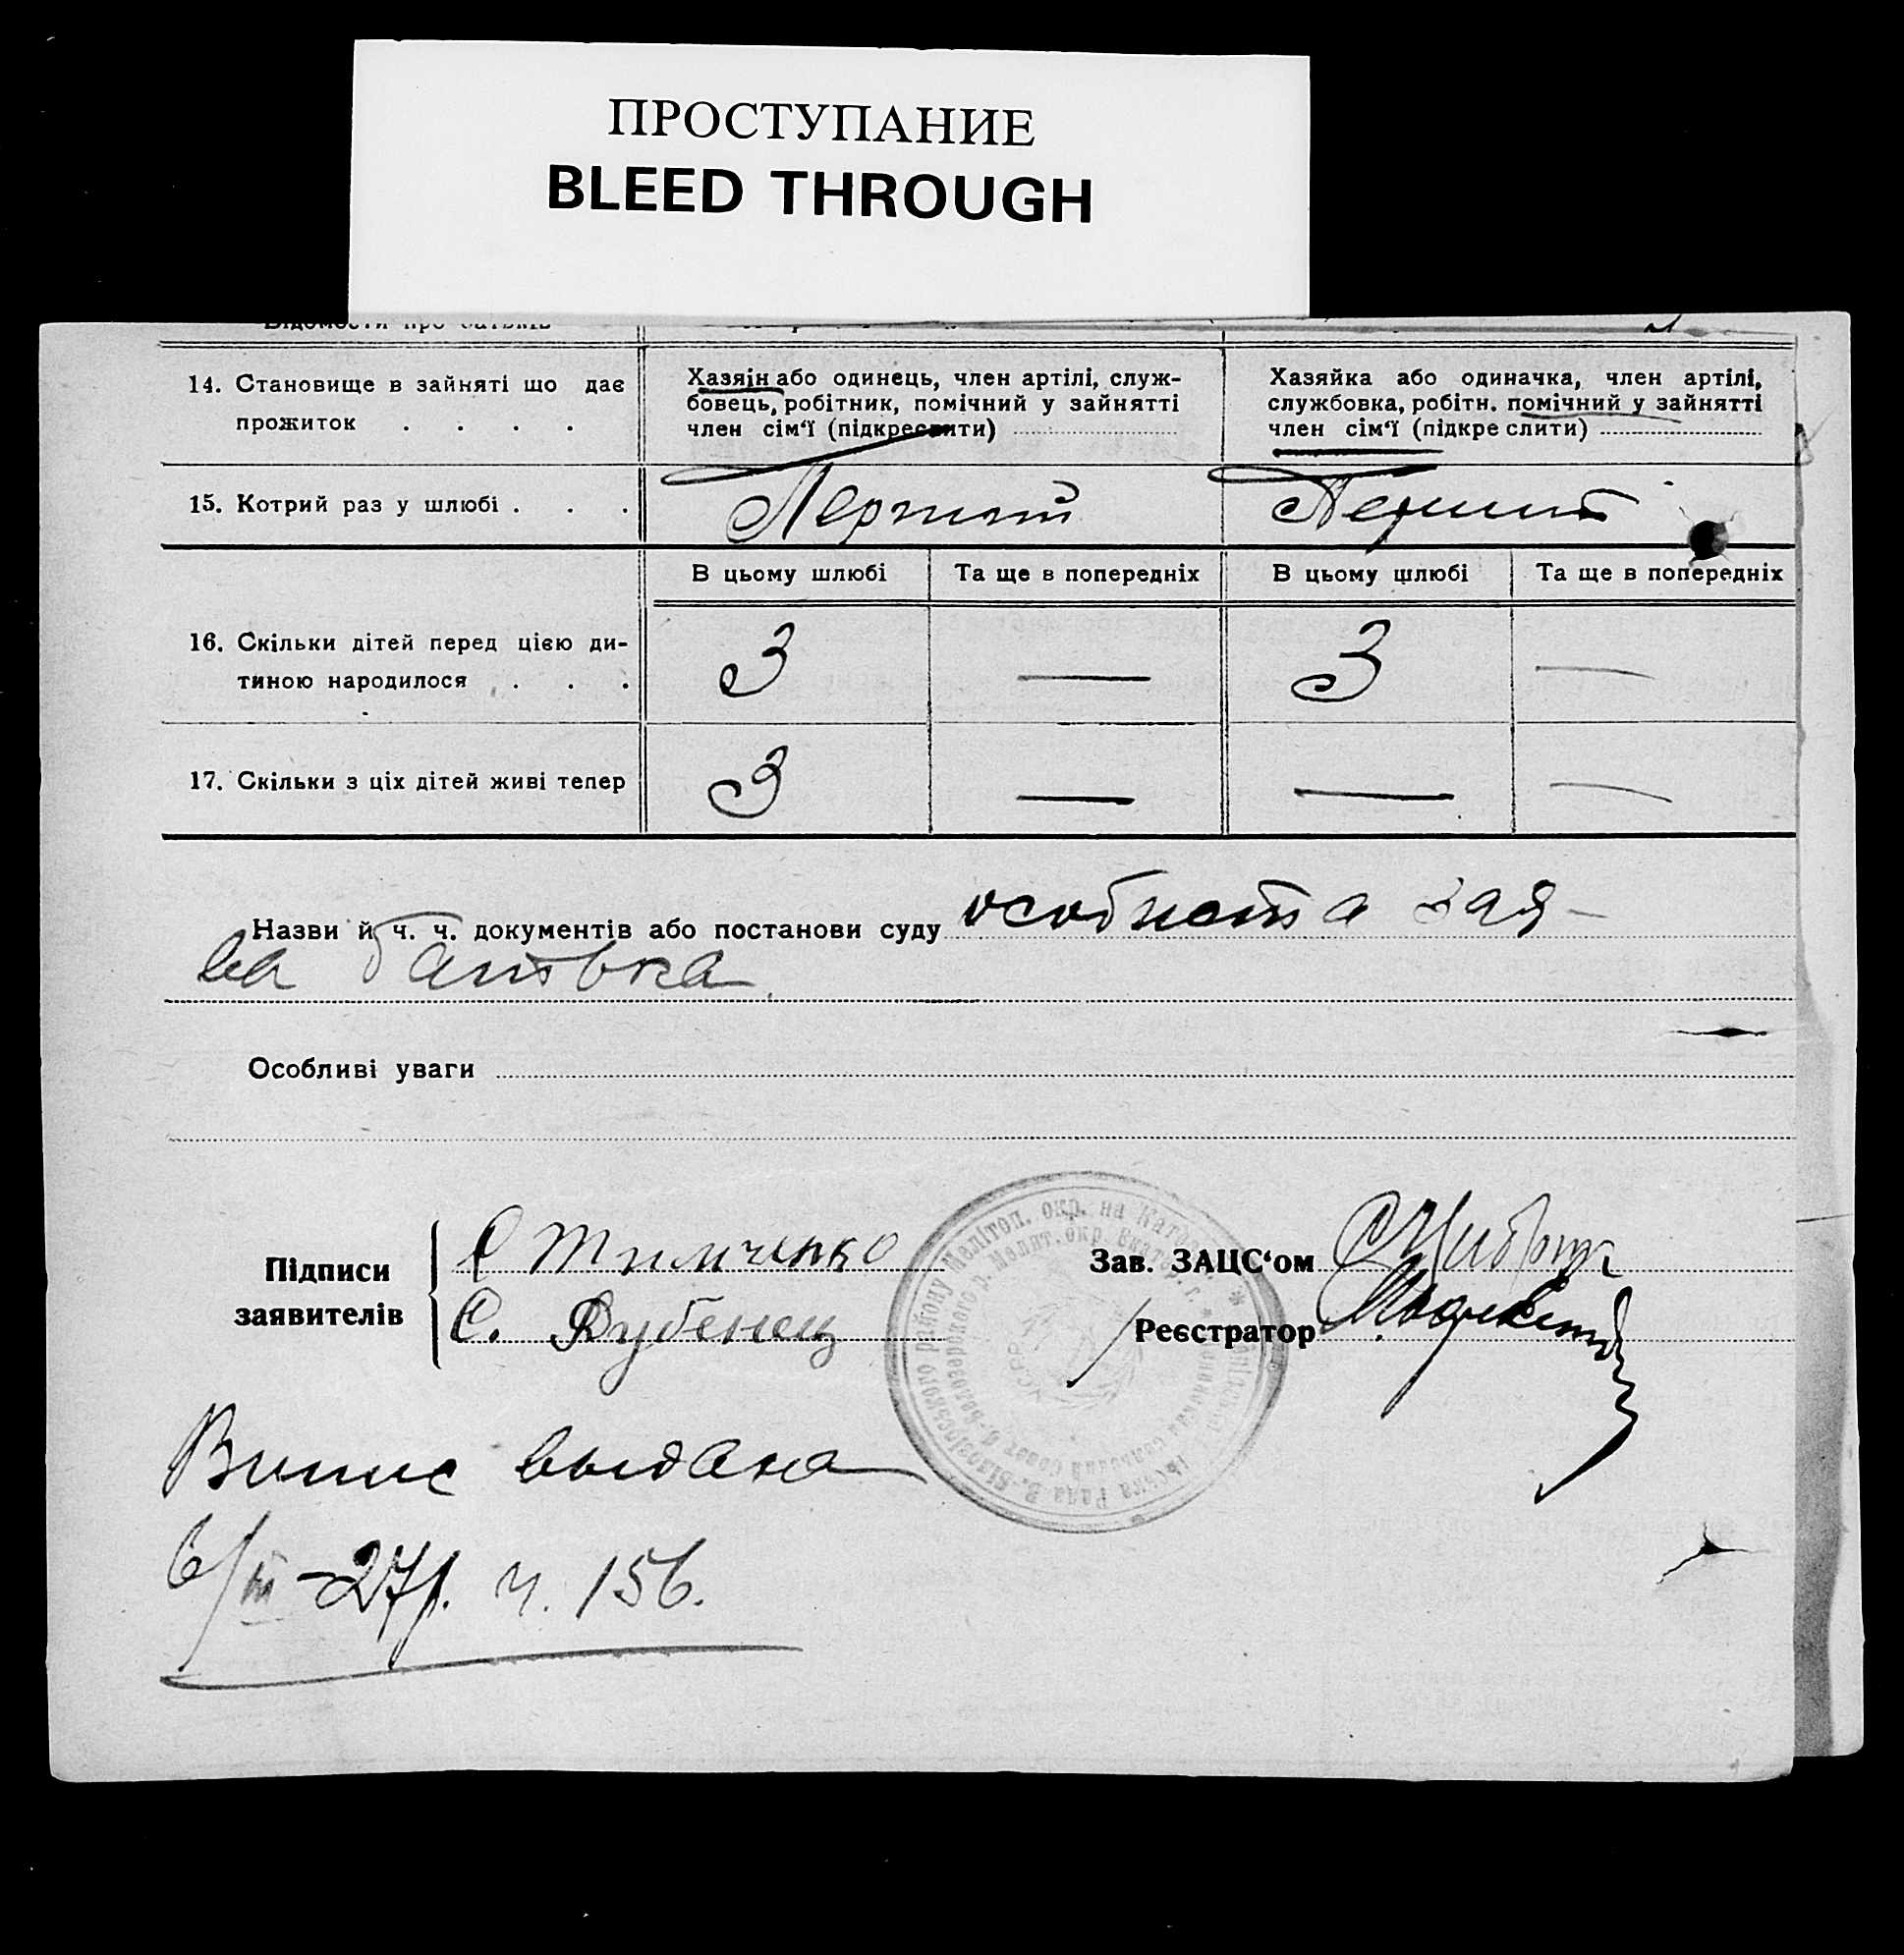 ПРОСТУПАНИЕ
BLEED THROUGH
Відомости про батьків
14. Становище в зайняті що дає
прожиток . . . .
Хазяїн або одинець, член артілі, служ-
бовець, робітник, помічний у зайнятті
член сім‘ї (підкреслити)
Хазяйка або одиначка, член артілі,
службовка, робітн. помічний у зайнятті
член сім‘ї (підкре слити)
15. Котрий раз у шлюбі . . .
Перший
Перший
В цьому шлюбі
Та ще в попередніх
В цьому шлюбі
Та ще в попередніх
16. Скільки дітей перед цією ди-
тиною народилося . . .
3
—
3
—
17. Скільки з ціх дітей живі тепер
3
—
—
—
Назви й ч. ч. документів або постанови суду особиста зая-
ва батька
Особливі уваги
Підписи
заявителів
С Тимченко
С. Дубенец
Зав. ЗАЦС‘ом
Реєстратор
Випис выдана
6/III-27р. ч. 156.